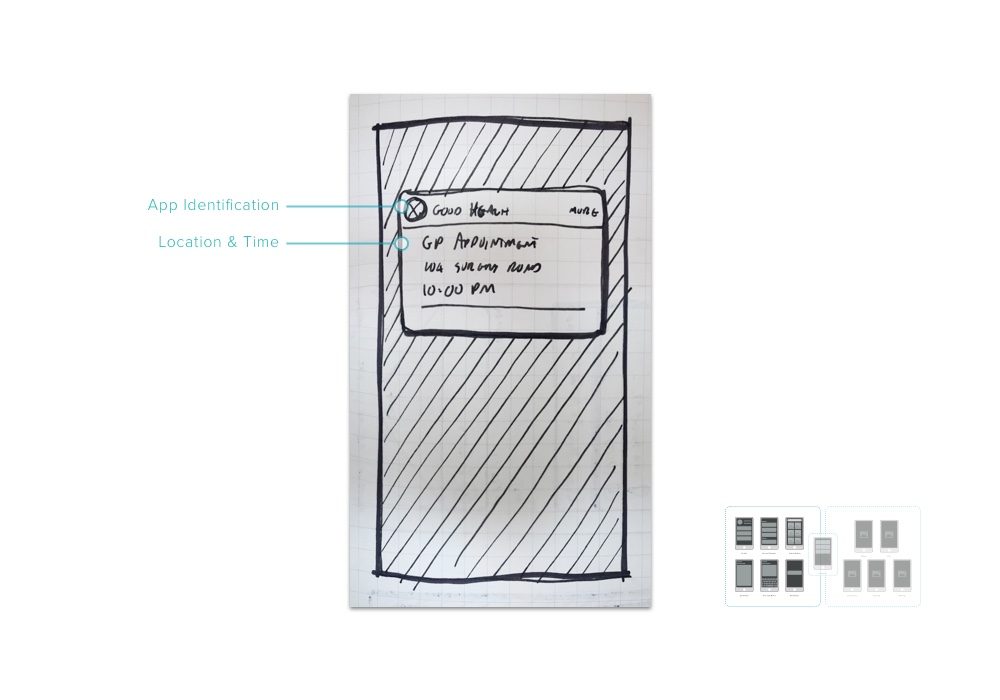 App Identification
Location & Time
GOOD HEALTH
MORE
GP APPOINTMENT
104 SURGERY ROAD
10:00 PM